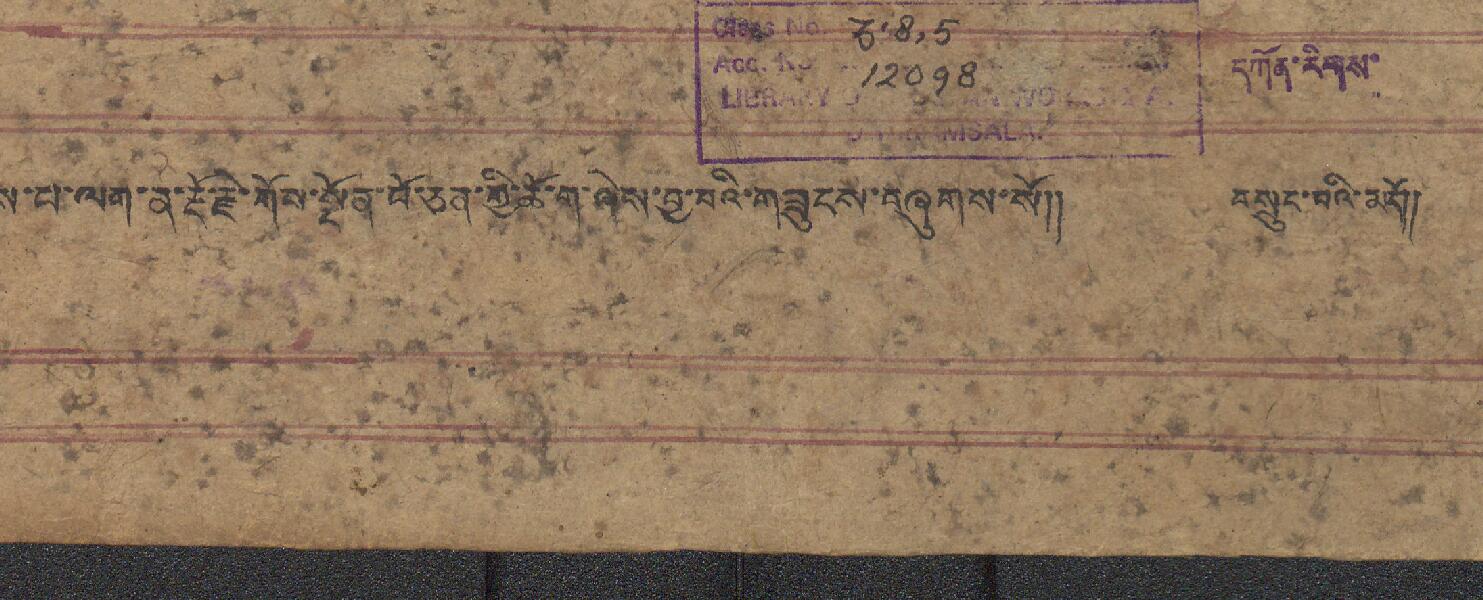 Class No. ཇ་8,5
Acc. No 12098
LIBRARY O
DHARAMSALA
དཀོན་རིགས་
ས་པ་ལག་ན་རྡོ་རྗེ་གོས་སྔོན་པོ་ཅན་གྱི་ཆོ་ག་ཞེས་བྱ་བའི་གཟུངས་བཞུགས་སོ།། བསྲུང་བའི་མདོ།།